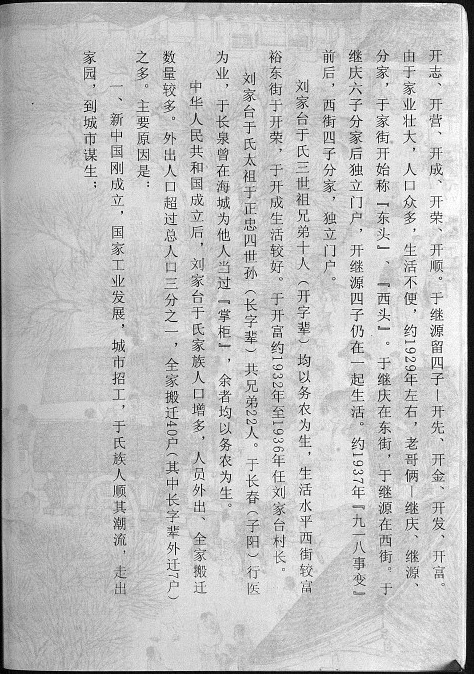 开志、开营、开成、开荣、开顺。于继源留四子—开先、开金、开发、开富。
由于家业壮大，人口众多，生活不便，约1929年左右，老哥俩—继庆、继源、
分家，于家街开始称『东头』、『西头』。于继庆在东街，于继源在西街。于
继庆六子分家后独立门户，开继源四子仍在一起生活。约1937年『九一八事变』
前后，西街四子分家，独立门户。
刘家台于氏三世祖兄弟十人（开字辈）均以务农为生，生活水平西街较富
裕东街于开荣，于开成生活较好。于开富约1932年至1936年任刘家台村长。
刘家台于氏太祖于正忠四世孙（长字辈）共兄弟22人。于长春（子阳）行医
为业，于长泉曾在海城为他人当过『掌柜』，余者均以务农为生。
中华人民共和国成立后，刘家台于氏家族人口增多，人员外出、全家搬迁
数量较多。外出人口超过总人口三分之一，全家搬迁40户（其中长字辈外迁7户）
之多。主要原因是：
一、新中国刚成立，国家工业发展，城市招工，于氏族人顺其潮流，走出
家园，到城市谋生；